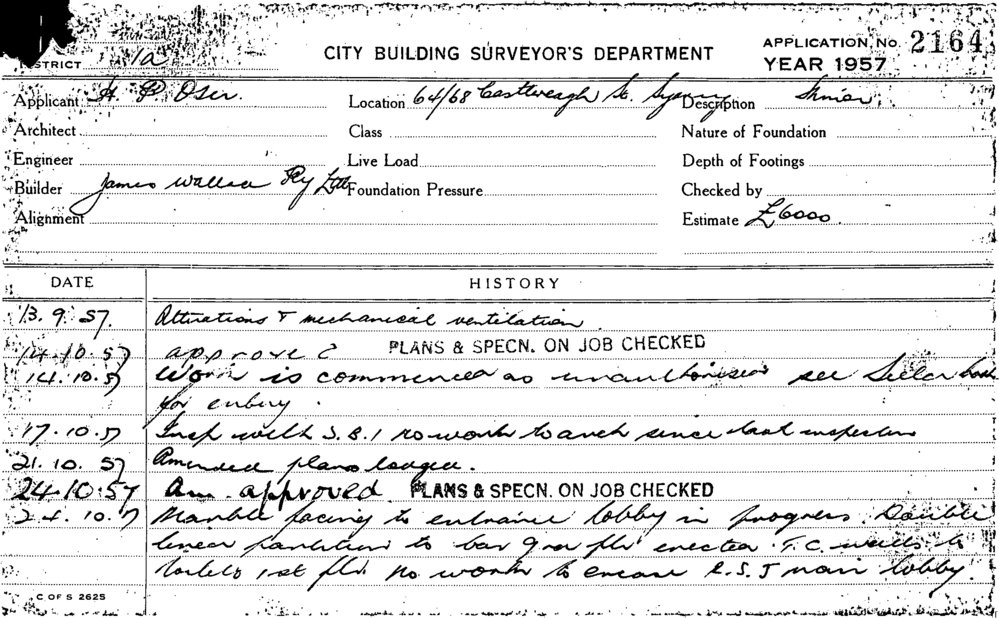 DISTRICT 1a CITY BUILDING SURVEYOR'S DEPARTMENT APPLICATION No. 2164
YEAR 1957
Applicant H P Oser. Location 64/68 Castlereagh St. Sydney Description
Architect Class Nature of Foundation
Engineer Live Load Depth of Footings
Builder James Wallace Pty Ltd Foundation Pressure Checked by
Alignment Estimate £6000.
DATE HISTORY
13.9.57. Alterations & mechanical ventilation
14.10.57 approved PLANS & SPECN. ON JOB CHECKED
14.10.57 Work is commenced as unauthorised see
for entry.
17.10.57 Insp with S.B.I no work to arch since last inspection
21.10.57 Amended plans lodged.
24.10.57 Am. approved PLANS & SPECN. ON JOB CHECKED
24.10.57 Marble facing to entrance lobby in progress. Double
partition to bar flr erected. T.C. walls to
toilets 1st flr. No work to encase R.S.J main lobby.
C OF S 2625